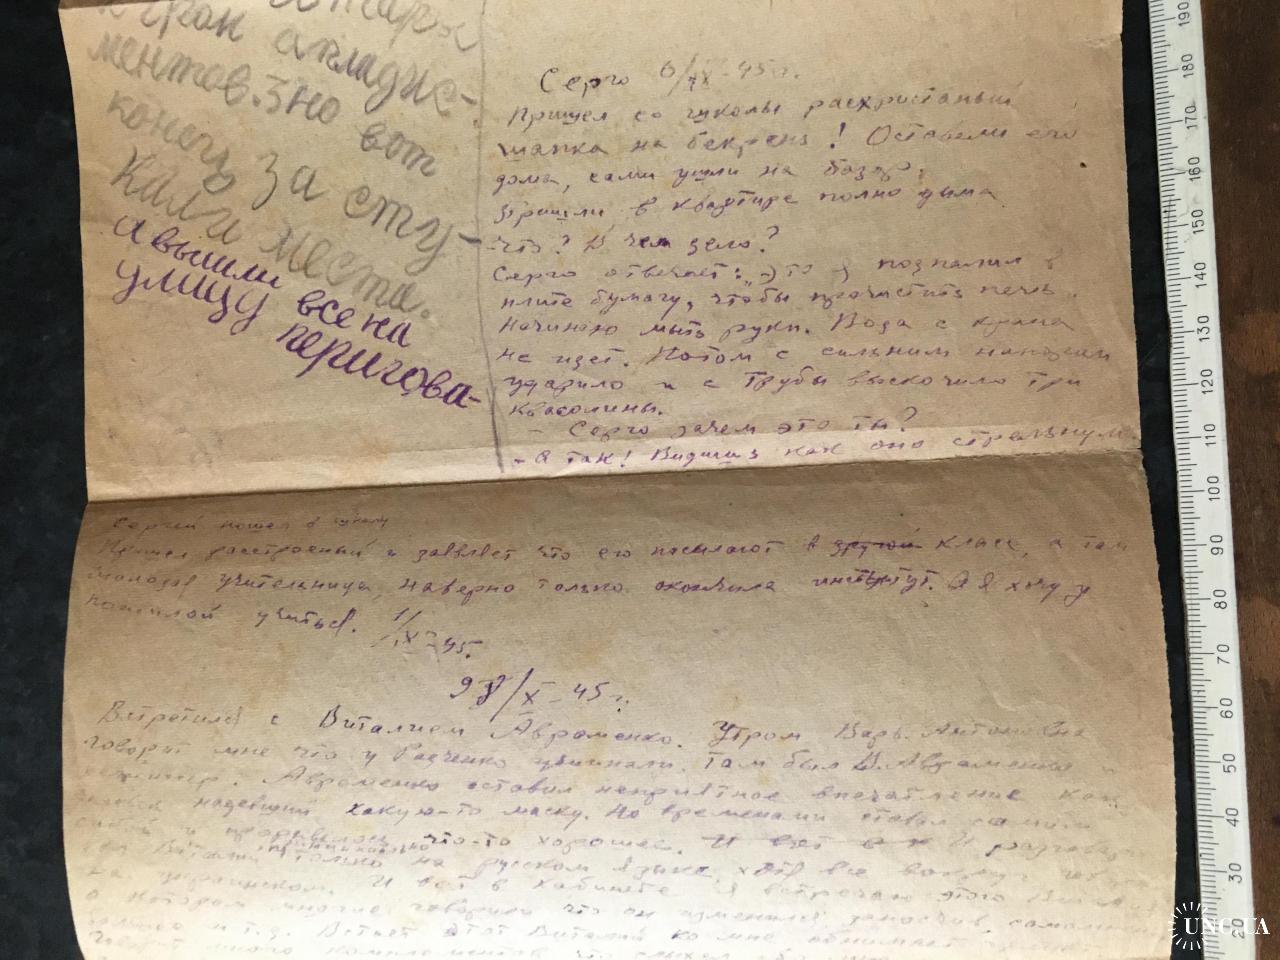 и гром апладис-
ментов. Зно вот
конец за сту-
кали места.
а вышли все на
улицу перигова-
Серго 6/IX-45г.
Пришел со школы расхристаный
шапка на бекрень! Оставили его
дома, сами ушли на базар.
Пришли в квартире полно дыма.
- Что? В чем дело?
Серго отвечает: "Это я розпалил в
плите бумагу, чтобы прочистить печь.
Начинаю мыть руки. Вода с крана
не идет. Потом с сильним напором
ударило и с трубы выскочило три
квасолины.
- Серго зачем это ты?
- А так! Видишь как оно стрельнуло
Сергей пошел в школу
Пришел расстроеный и заявляет что его посылают в другой класс, а там
молодая учительница, наверно только окончила институт. А я хочу у
пожилой учиться. 1/IX-45.
9/X-45г.
Встретился с Виталием Авраменко. Утром Варь. Антоновна
говорит мне что у Радченко ужинали. Там был В. Авраменко и
Авраменко оставил неприятное впечатление как
надевший какую-то маску. Но временами ставал самим
собой и прорывалось что-то хорошее. И разговаривал
Виталий принципиально только на русском языке, хотя все вокруг
на украинском. И вот в кабинете я встречаю этого Виталия
о котором многие говорили что он изменился, заносчив,
и т.д. Встает этот Виталий ко мне, обнимает
Говорит много комплементов что слыхал обо мне